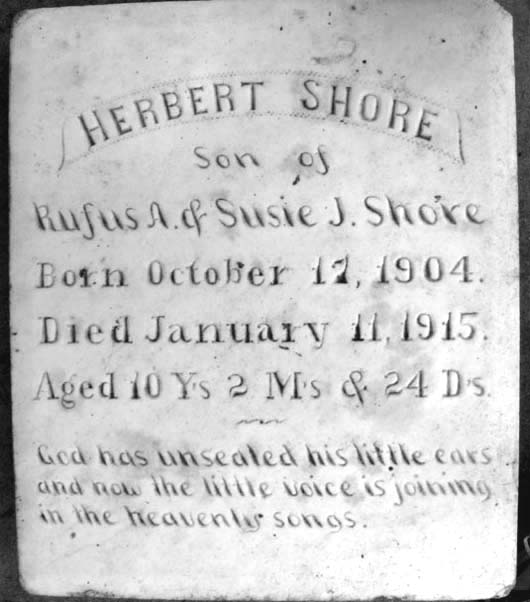 HERBERT SHORE
Son of
Rufus A. & Susie J. Shore
Born October 17, 1904.
Died January 11, 1915.
Aged 10 Y's 2 M's & 24 D's.
God has unsealed his little ears
and now the little voice is joining
in the heavenly songs.